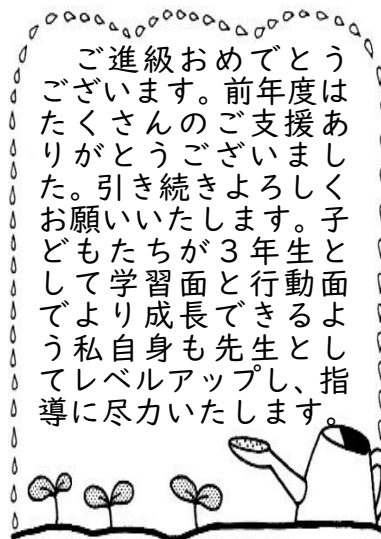 ご進級おめでとう
ございます。前年度は
たくさんのご支援あ
りがとうございまし
た。引き続きよろしく
お願いいたします。子
どもたちが３年生と
して学習面と行動面
でより成長できるよ
う私自身も先生とし
てレベルアップし、指
導に尽力いたします。